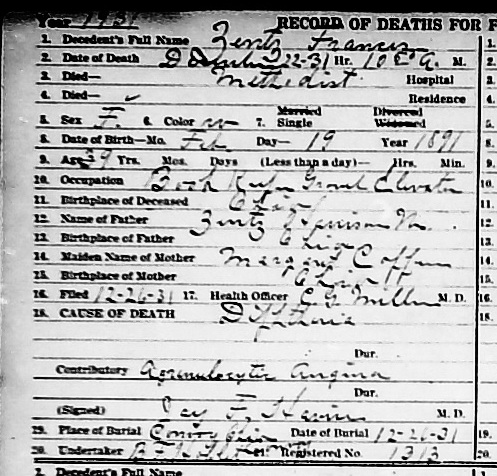 Year 1931 RECORD OF DEATHS FOR F
1. Decedent's Full Name Zentz Francis 1.
2. Date of Death 22-31 Hr. 10 A. M. 2.
3. Died— Methodist Hospital 3.
4. Died— Residence 4.
5. Sex F. 6. Color w 7. Married Single Divorced Widowed 5.
8. Date of Birth—Mo. Feb. Day— 19 Year 1891 8.
9. Age Yrs. Mos. Days (Less than a day)— Hrs. Min. 9.
10. Occupation Book Elevator 10.
11. Birthplace of Deceased Ohio 11.
12. Name of Father Zentz Harrison 12.
13. Birthplace of Father Ohio 13.
14. Maiden Name of Mother Margaret 14.
15. Birthplace of Mother Ohio 15.
16. Filed 12-26-31 17. Health Officer E. G. Miller M. D. 16.
18. CAUSE OF DEATH Diphtheria 18.
Dur.
Contributory Agranulocytic Angina
Dur.
(Signed) Jay F. M. D.
19. Place of Burial Convoy Date of Burial 12-26-31 19.
20. Undertaker 21. Registered No. 1313 20.
1. Decedent's Full Name 1.